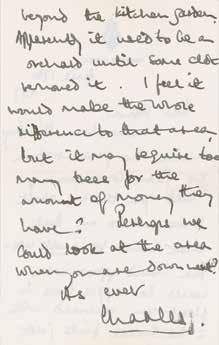 beyond the kitchen garden.
Apparently it used to be an
orchard until some clot
removed it. I feel it
would make the whole
difference to that area,
but it may require too
many trees for the
amount of money they
have? Perhaps we
could look at the area
when you are down next?
As ever
Charles.